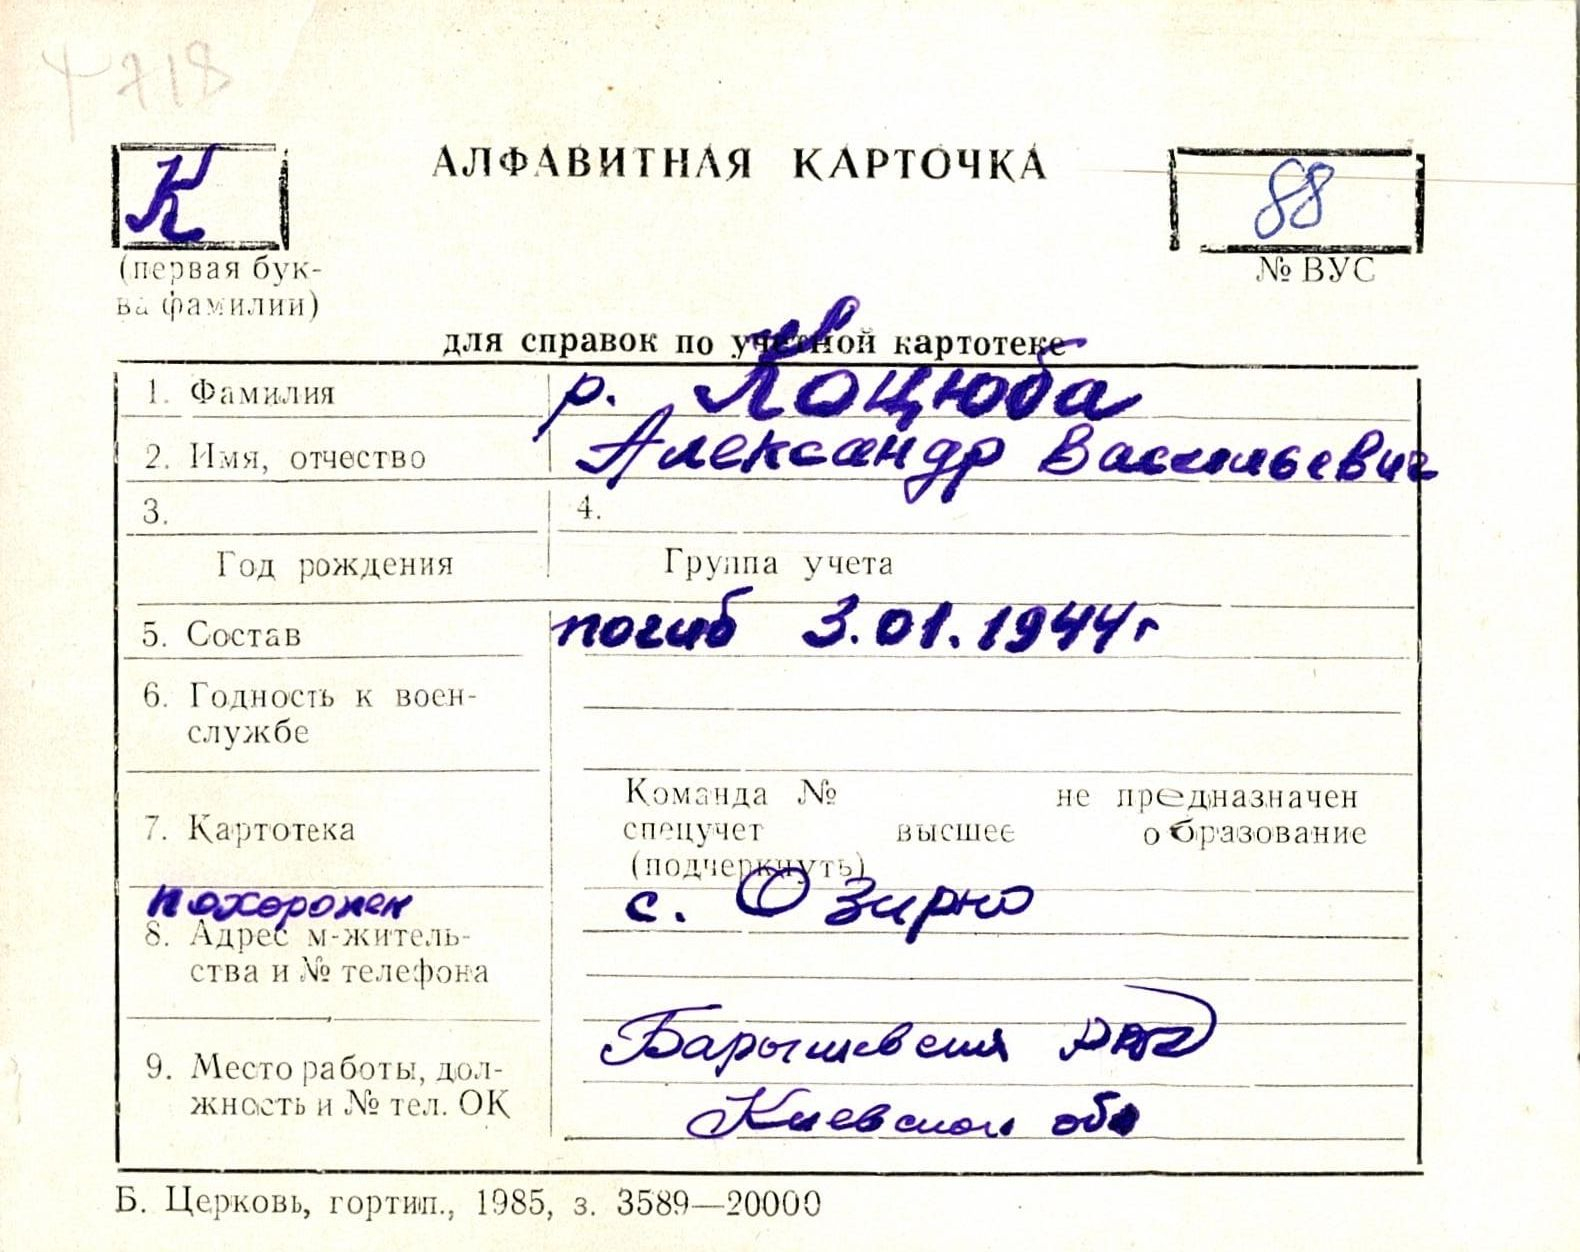 4718
К
АЛФАВИТНАЯ КАРТОЧКА
88
(первая бук-
ва фамилии)
№ ВУС
для справок по учетной картотеке
1. Фамилия р. Коцюба
2. Имя, отчество Александр Васильевич
3. 4.
Год рождения Группа учета
5. Состав погиб 3.01.1944г
6. Годность к воен-
службе
Команда № не предназначен
7. Картотека спецучет высшее образование
(подчеркнуть)
похоронен с. Озирно
8. Адрес м-житель-
ства и № телефона
Барышевския
9. Место работы, дол-
жность и № тел. ОК
Киевской обл
Б. Церковь, гортип., 1985, з. 3589—20000